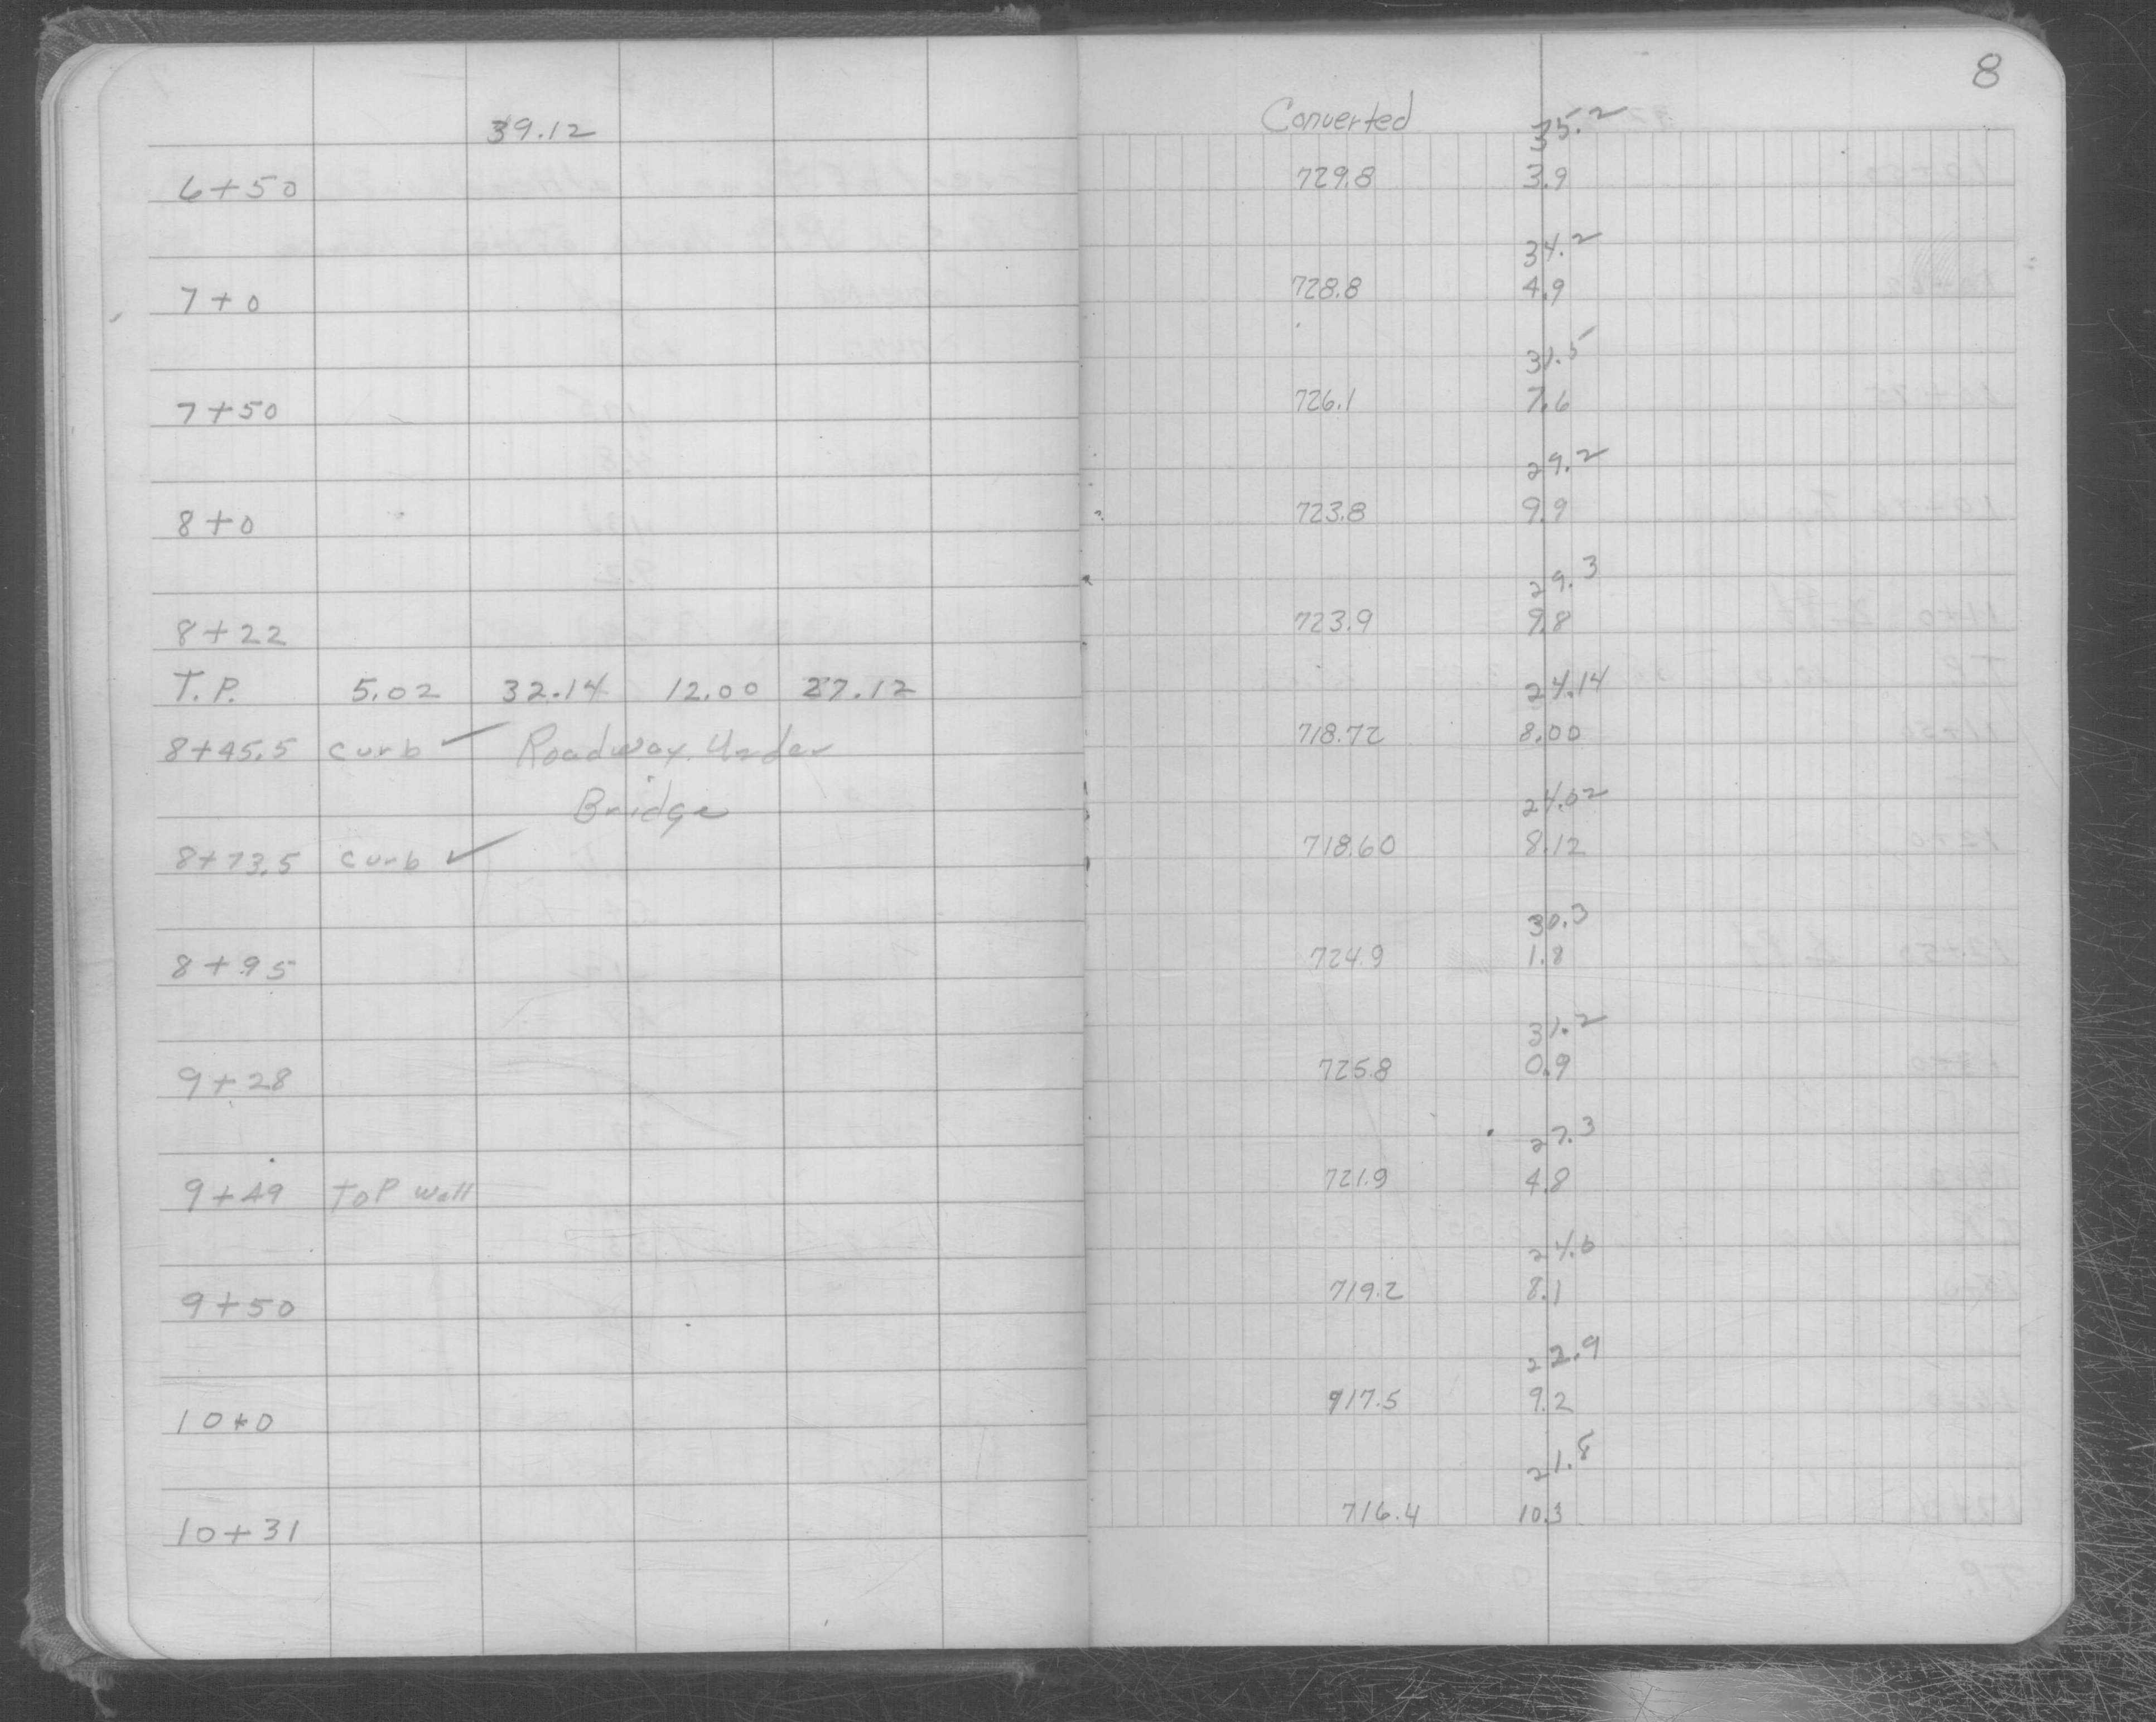 8
39.12 Converted 35.2
6+50 729.8 3.9
34.2
7+0 728.8 4.9
31.5
7+50 726.1 7.6
29.2
8+0 723.8 9.9
29.3
8+22 723.9 9.8
T.P. 5.02 32.14 12.00 27.12 24.14
8+45.5 curb ✓ Roadway Under 718.72 8.00
Bridge 24.02
8+73.5 curb ✓ 718.60 8.12
30.3
8+95 724.9 1.8
31.2
9+28 725.8 0.9
27.3
9+49 ToP wall 721.9 4.8
24.6
9+50 719.2 8.1
22.9
10+0 717.5 9.2
21.8
10+31 716.4 10.3